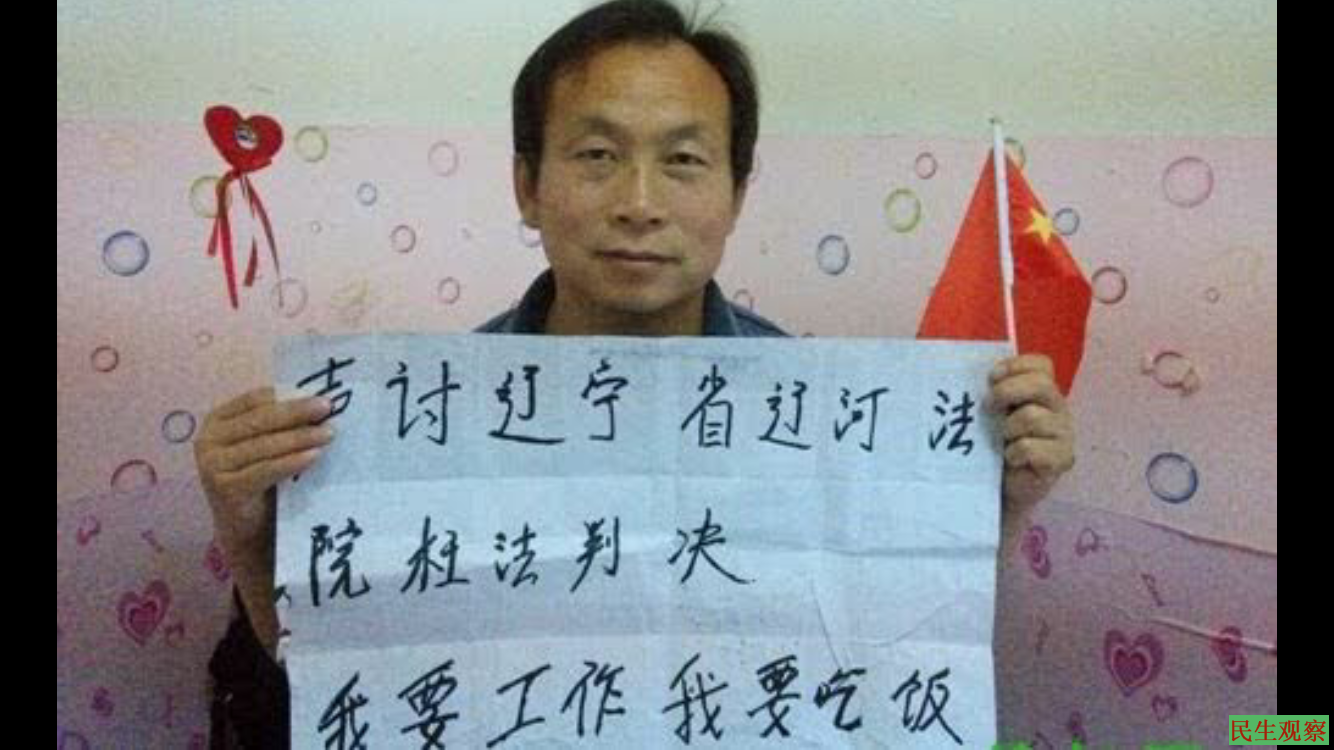 声讨辽宁省辽河法
院枉法判决
我要工作我要吃饭
民生观察